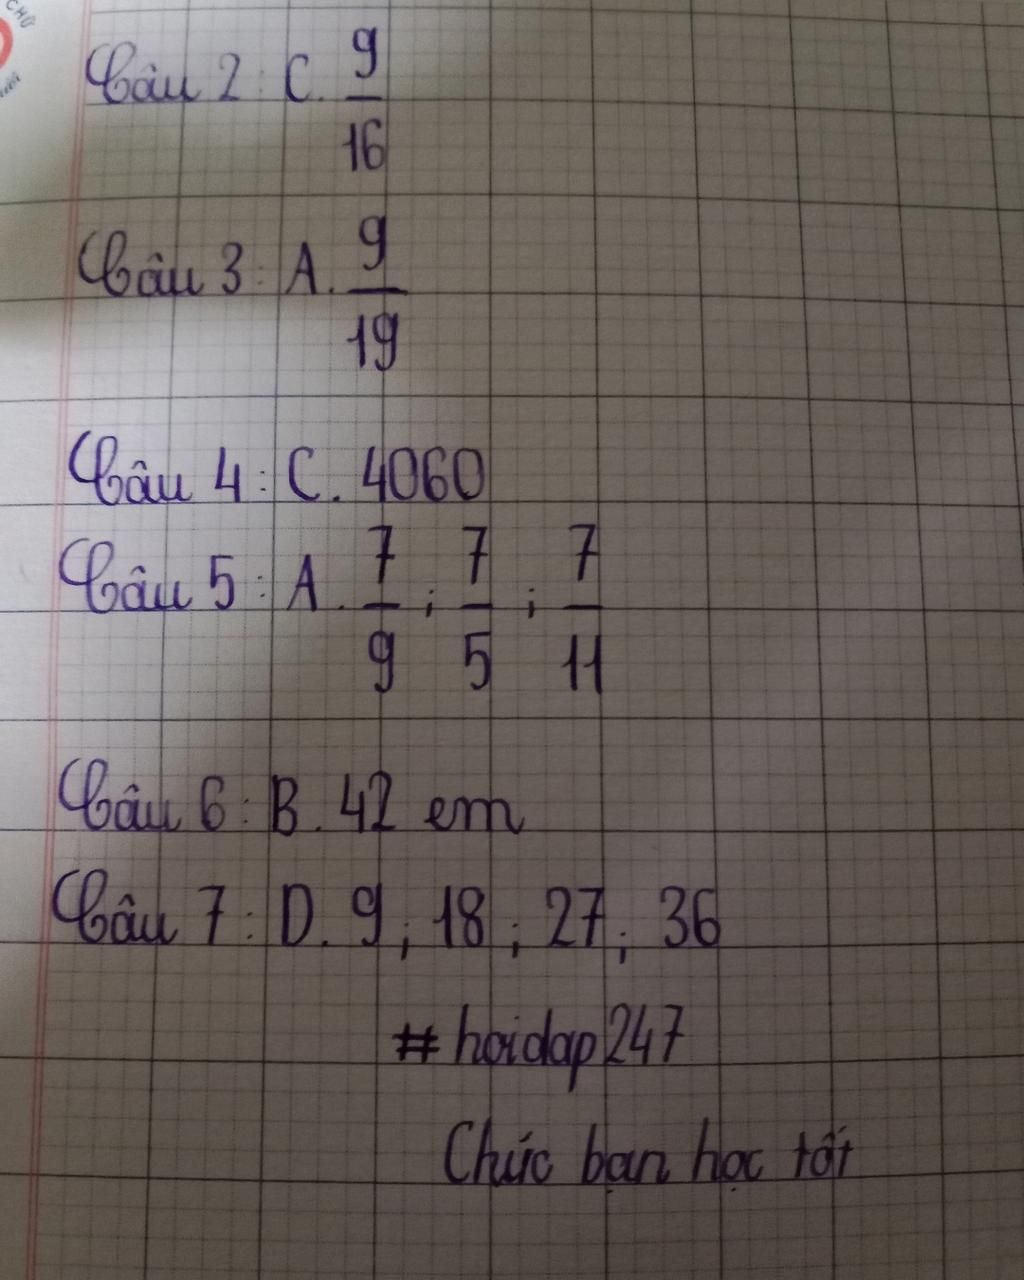 CHỮ
Câu 2: C. 9/16
Câu 3: A. 9/19
Câu 4: C. 4060
Câu 5: A. 7/9; 7/5; 7/11
Câu 6: B. 42 em
Câu 7: D. 9; 18; 27; 36
#hoidap247
Chúc bạn học tốt